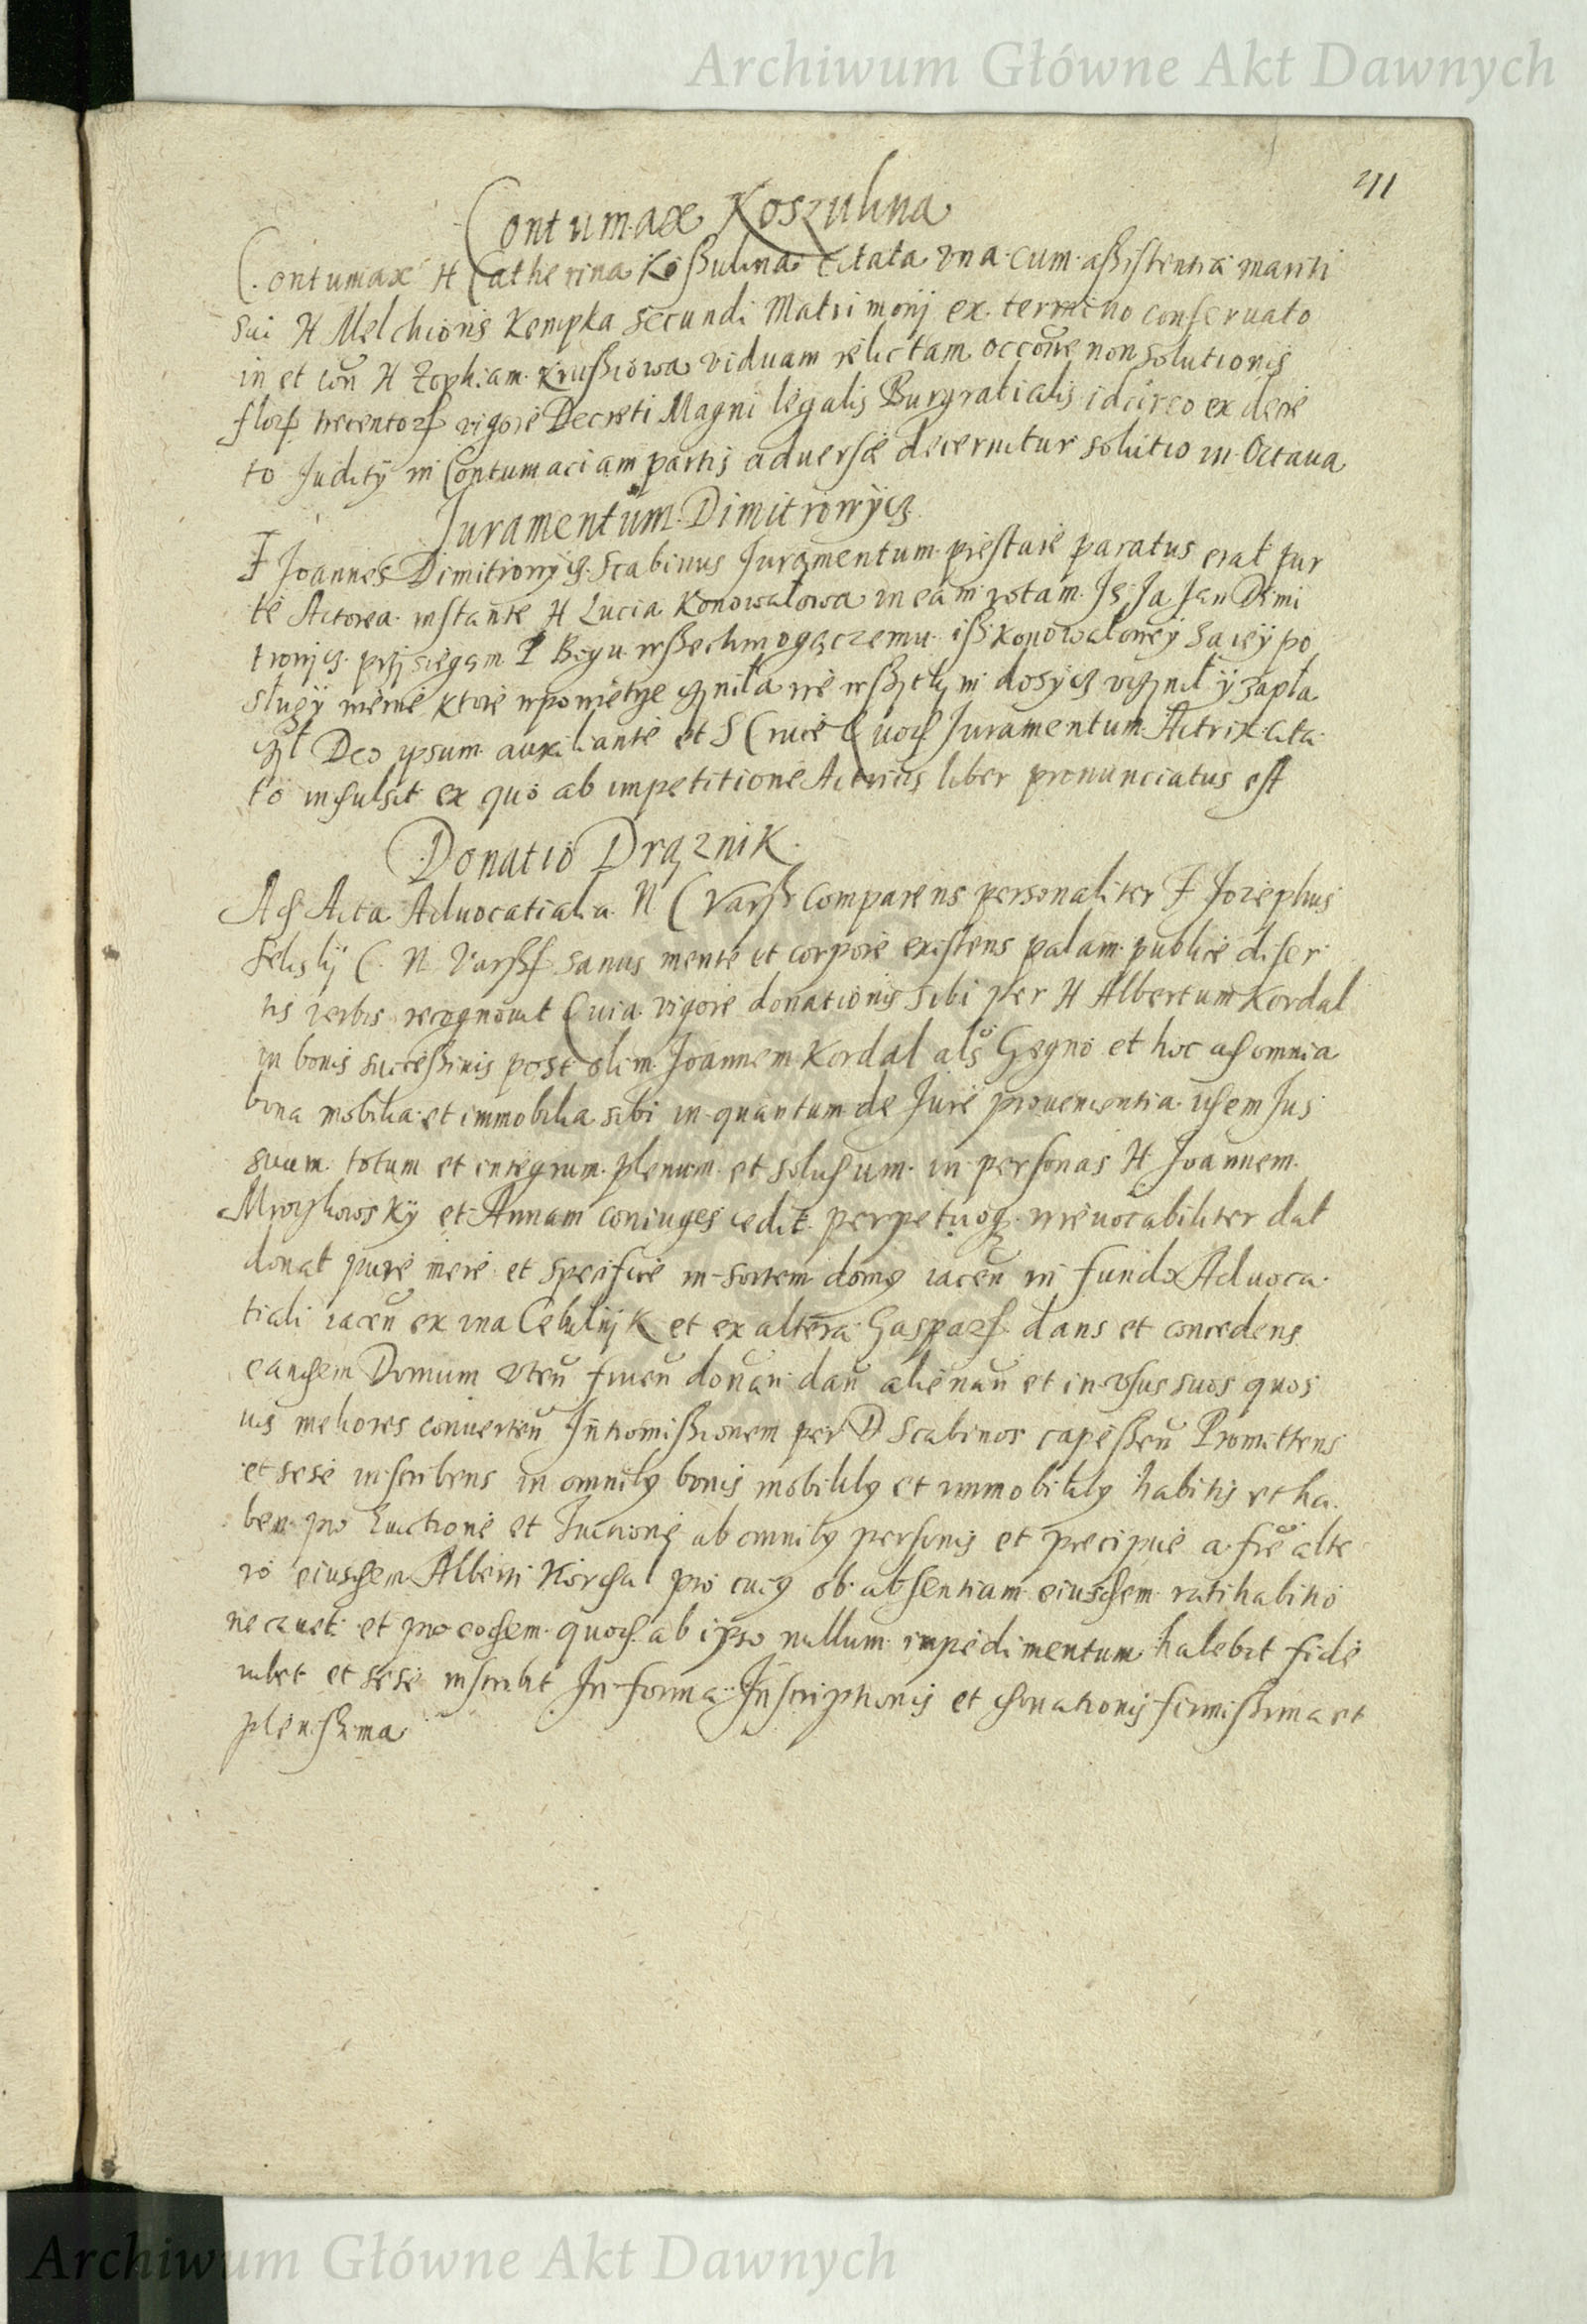 Archiwum Główne Akt Dawnych
211
Contumax Koszulina
Contumax H Catherina Koßulina citata una cum aßistentia mariti
sui H Melchioris Kempka secundi Matrimonij ex termino conseruato
in et con H Zophiam Krußiowa viduam relictam occone non solutionis
flor trecentor vigore Decreti Magni legalis Burgrabialis idcirco ex decre
to Juditij in Contumaciam partis aduersæ decernitur solutio in Octaua
Juramentum Dimitrowycz
F Joannes Dimitrowycz Scabinus Juramentum prestare paratus erat Par
te Actorea instante H Lucia Konowałowa in eam rotam Js Ja Jan Dimi
trowycz przysięgam P Bogu wßechmogączemu iß Konowałowey za iey po
sługy ktore czniła dosycz vcznił y zapła
czył Deo ipsum auxiliante et S Cruce Quod Juramentum Actrix cita
to indulsit ex quo ab impetitione Actricis liber pronunciatus est
Donatio Drąznik
Ad Acta Aduocatialia N C Varß comparens personaliter F Jozephus
C N Varß sanus mente et corpore existens palam publice diser
tis verbis recognouit Quia vigore donationis sibi per H Albertum Kordal
in bonis sucessiuis post olim Joannem Kordal als Gegno et hoc ad omnia
bona mobilia et immobilia sibi in quantum de Jure prouenientia idem Jus
suum totum et integrum plenum et solidum in personas H Joannem
et Annam coniuges cedit perpetuoq irreuocabiliter dat
donat pure mere et specifice in sortem domus iacen in fundo Aduoca
tiali iacen ex una Cebulnyk et ex altera Gaspar dans et concedens
eandem Domum vten fruen donan dan alienan et in vsus suos quos
uis meliores conuerten Intromissionem per D Scabinos capeßen Promittens
et sese inscribens in omnibus bonis mobilibus et immobilibus habitis et ha
ben pro Euictione et Tuitione ab omnibus personis et precipue a fre alte
ro eiusdem Alberti Kordal pro cuius ob absentiam eiusdem ratihabitio
ne cauet et pro eodem quod ab ipso nullum impedimentum habebit fide
iubet et sese inscribit In forma Inscriptionis et donationis firmissima et
plenissima
Archiwum Główne Akt Dawnych